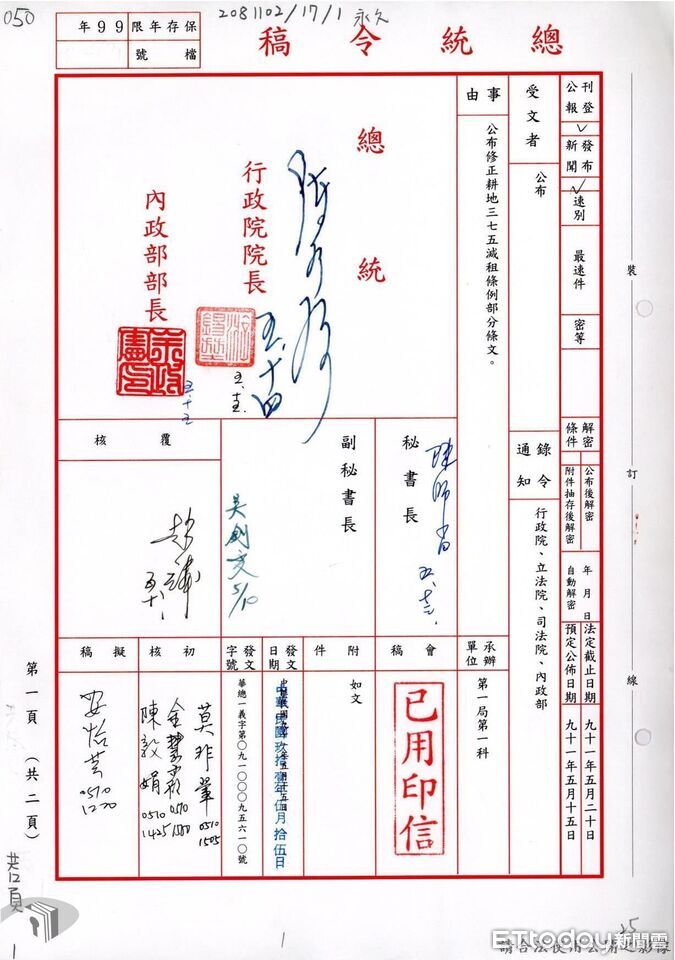 050
2081102/17/1 永久
保存年限 99年
檔號
總統令稿
刊登公報
發布新聞
速別
最速件
密等
解密條件
公布後解密
附件抽存後解密
年 月 日自動解密
法定截止日期 九十一年五月二十日
預定公佈日期 九十一年五月十五日
受文者
公布
錄令通知
行政院、立法院、司法院、內政部
事由
公布修正耕地三七五減租條例部分條文。
承辦單位
第一局第一科
總統
五、十四
行政院院長
內政部部長
五、十五
秘書長
陳師孟
副秘書長
吳釗燮 5/10
覆核
會稿
已用印信
附件
如文
發文日期
中華民國玖拾壹年伍月拾伍日
發文字號
華總一義字第〇九一〇〇〇九五六一〇號
初核
莫非
0510
1505
0510
陳毅娟
0510
1425
擬稿
0510
1220
裝
訂
線
第一頁(共二頁)
共2頁
1
1
25
ETtoday新聞雲
請合法使用公開之影像